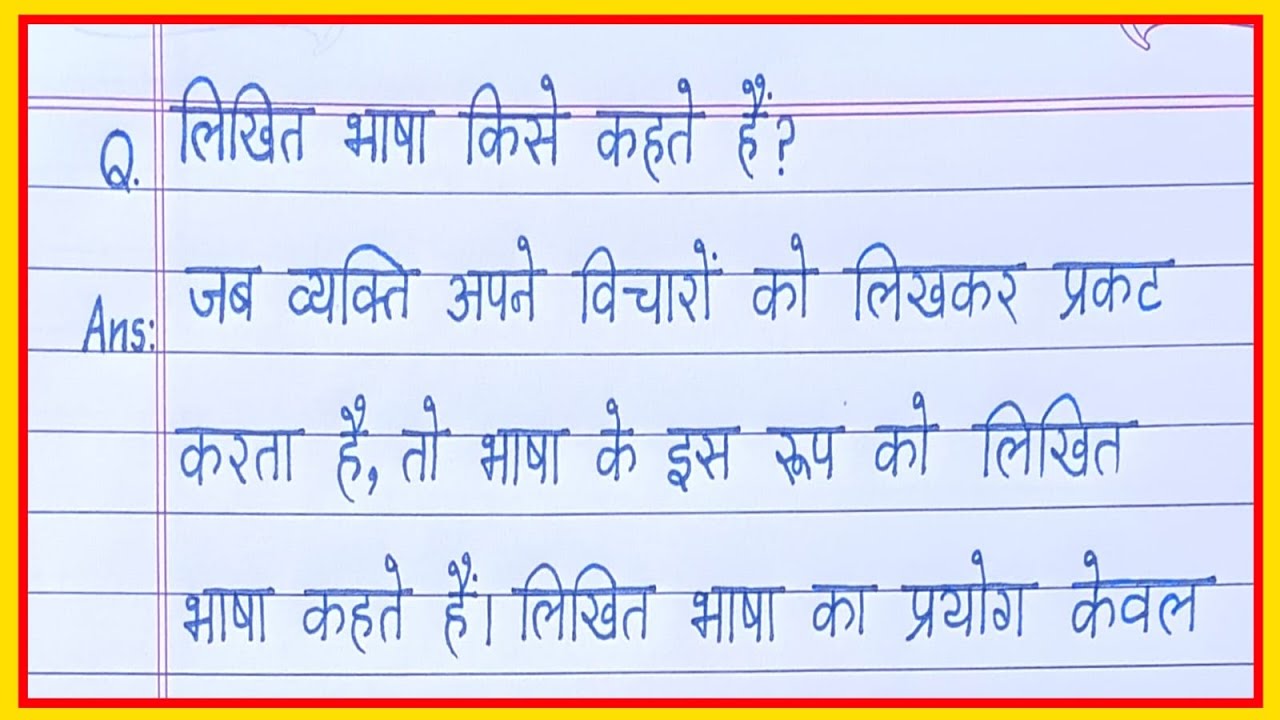 Q. लिखित भाषा किसे कहते हैं?
Ans: जब व्यक्ति अपने विचारों को लिखकर प्रकट
करता है, तो भाषा के इस रूप को लिखित
भाषा कहते हैं। लिखित भाषा का प्रयोग केवल